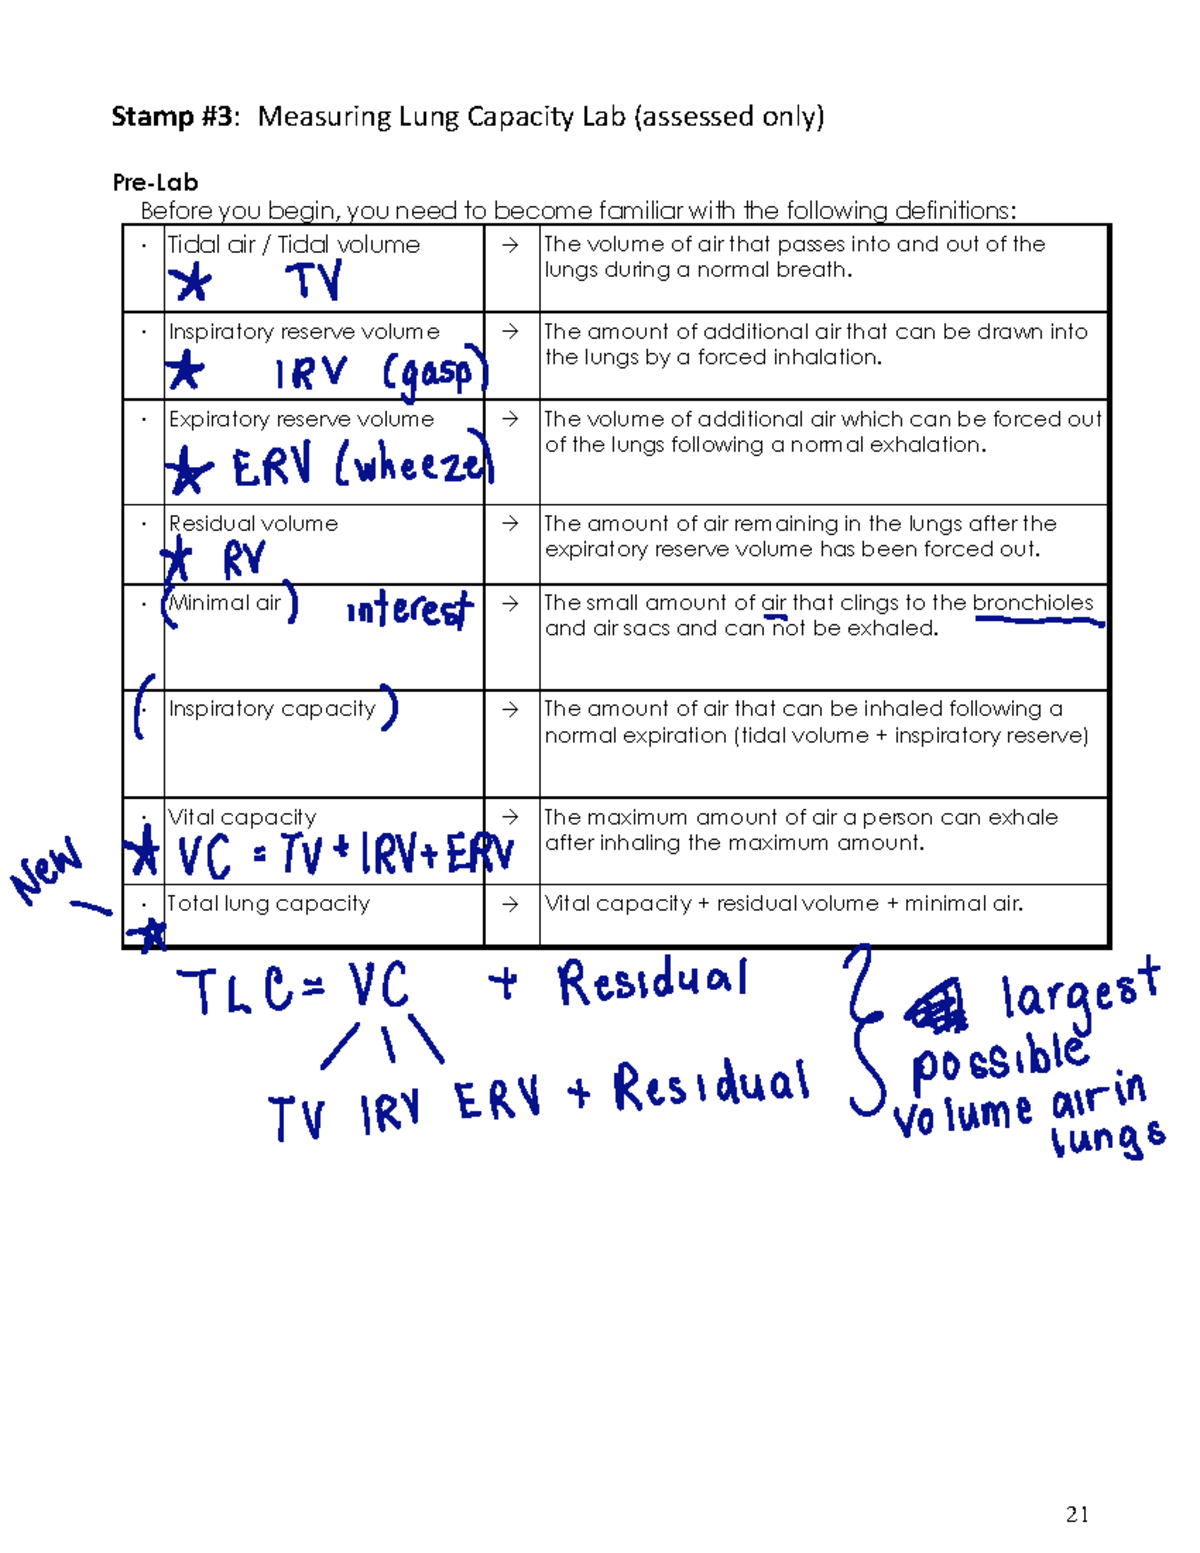 Stamp #3: Measuring Lung Capacity Lab (assessed only)
Pre-Lab
Before you begin, you need to become familiar with the following definitions:
· Tidal air / Tidal volume → The volume of air that passes into and out of the
lungs during a normal breath.
★ TV
· Inspiratory reserve volume → The amount of additional air that can be drawn into
the lungs by a forced inhalation.
★ IRV (gasp)
· Expiratory reserve volume → The volume of additional air which can be forced out
of the lungs following a normal exhalation.
★ ERV (wheeze)
· Residual volume → The amount of air remaining in the lungs after the
expiratory reserve volume has been forced out.
★ RV
· (Minimal air) interest → The small amount of air that clings to the bronchioles
and air sacs and can not be exhaled.
(· Inspiratory capacity) → The amount of air that can be inhaled following a
normal expiration (tidal volume + inspiratory reserve)
· Vital capacity → The maximum amount of air a person can exhale
after inhaling the maximum amount.
★ VC = TV + IRV + ERV
New
· Total lung capacity → Vital capacity + residual volume + minimal air.
★
TLC = VC + Residual
TV IRV ERV + Residual
largest
possible
volume air in
lungs
21